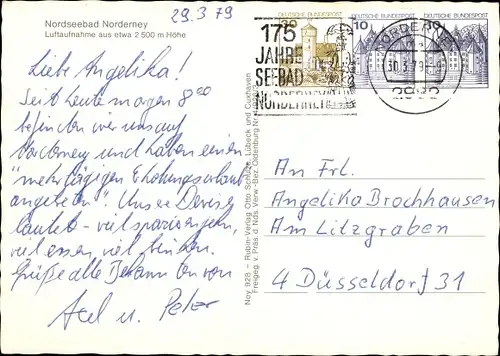 29.3.79
Nordseebad Norderney
Luftaufnahme aus etwa 2 500 m Höhe
Liebe Angelika!
Seit heute morgen 8⁰⁰
befinden wir uns auf
Norderney und haben einen
"mehrtägigen Erholungsurlaub
angetreten". Unser Devise
lautet - viel spazierengehn,
viel essen, viel trinken.
Grüße alle Bekannten von
Axel u. Peter
Noy 928 – Rubin-Verlag Otto Schulze, Lübeck und Cuxhaven
Freigeg. v. Präs. d. Nds. Verw.-Bez. Oldenburg
30
DEUTSCHE BUNDESPOST
10
DEUTSCHE BUNDESPOST
10
DEUTSCHE BUNDESPOST
175
JAHRE
SEEBAD
NORDERNEY
NORDERNEY
30.3.79-9
2982
An Frl.
Angelika Brochhausen
Am Litzgraben
4 Düsseldorf 31